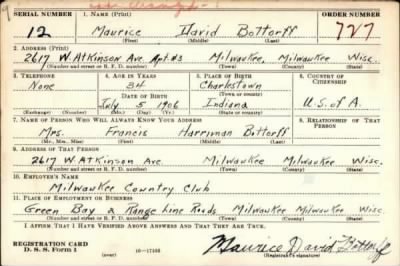 SERIAL NUMBER 1. NAME (Print) ORDER NUMBER
12 Maurice David Bottorff 727
(First) (Middle) (Last)
2. ADDRESS (Print)
2617 W. Atkinson Ave Apt #3 Milwaukee, Milwaukee Wisc.
(Number and street or R. F. D. number) (Town) (County) (State)
3. TELEPHONE 4. AGE IN YEARS 5. PLACE OF BIRTH 6. COUNTRY OF CITIZENSHIP
None 34 Charlestown
DATE OF BIRTH (Town or county)
July 5 1906 Indiana U.S. of A.
(Exchange) (Number) (Mo.) (Day) (Yr.) (State or country)
7. NAME OF PERSON WHO WILL ALWAYS KNOW YOUR ADDRESS 8. RELATIONSHIP OF THAT PERSON
Mrs. Francis Harriman Bottorff
(Mr., Mrs., Miss) (First) (Middle) (Last)
9. ADDRESS OF THAT PERSON
2617 W Atkinson Ave. Milwaukee Milwaukee Wisc.
(Number and street or R. F. D. number) (Town) (County) (State)
10. EMPLOYER'S NAME
Milwaukee Country Club
11. PLACE OF EMPLOYMENT OR BUSINESS
Green Bay & Range Line Roads Milwaukee Milwaukee Wisc.
(Number and street or R. F. D. number) (Town) (County) (State)
I AFFIRM THAT I HAVE VERIFIED ABOVE ANSWERS AND THAT THEY ARE TRUE.
REGISTRATION CARD
D. S. S. Form 1 (over) 16—17105 Maurice David Bottorff
(Registrant's signature)